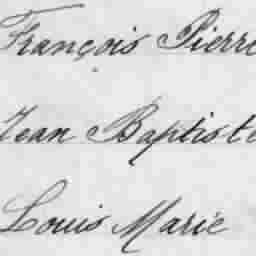 François Pierre
Jean Baptiste
Louis Marie